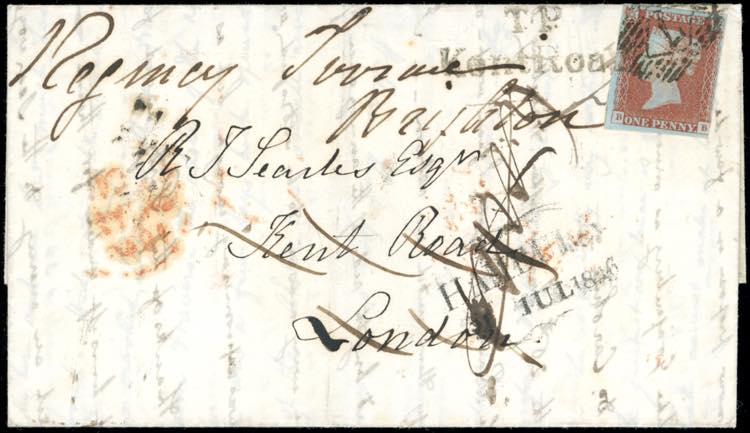 T.P
Kent Road
POSTAGE
B ONE PENNY B
Regency Terrace
Brighton
R J Searles Esqr
Kent Road
London.
JUL 1846